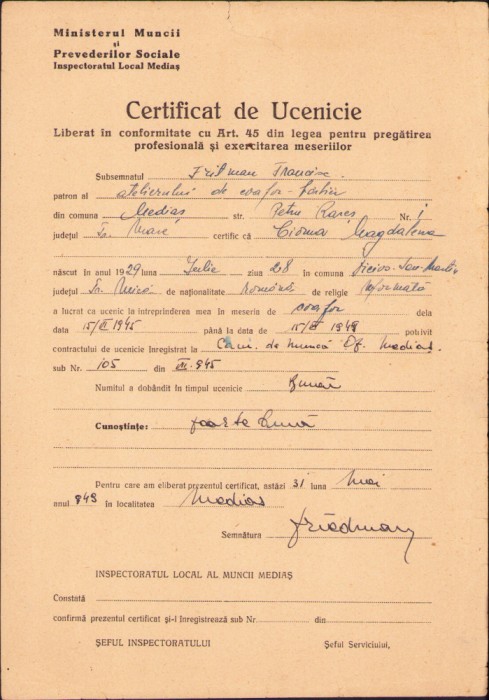 Ministerul Muncii
și
Prevederilor Sociale
Inspectoratul Local Mediaș
Certificat de Ucenicie
Liberat în conformitate cu Art. 45 din legea pentru pregătirea
profesională și exercitarea meseriilor
Subsemnatul Fridman Francisc
patron al atelierului de coafor-
din comuna Mediaș str. Petru Rareș Nr. 1
județul certific că Magdalena
născut în anul 1929 luna Iulie ziua 28 în comuna
județul de naționalitate Română de religie reformată
a lucrat ca ucenic la întreprinderea mea în meseria de coafor dela
data 15/ 1945 până la data de 15/ 1948 potrivit
contractului de ucenicie înregistrat la Cam. de muncă Of. Mediaș.
sub Nr. 105 din 945
Numitul a dobândit în timpul ucenicie Bună
Cunoștințe: foarte bună
Pentru care am eliberat prezentul certificat, astăzi 31 luna Mai
anul 949 în localitatea Mediaș
Semnătura Friedman
INSPECTORATUL LOCAL AL MUNCII MEDIAȘ
Constată
confirmă prezentul certificat și-l înregistrează sub Nr. din
ȘEFUL INSPECTORATULUI Șeful Serviciului,